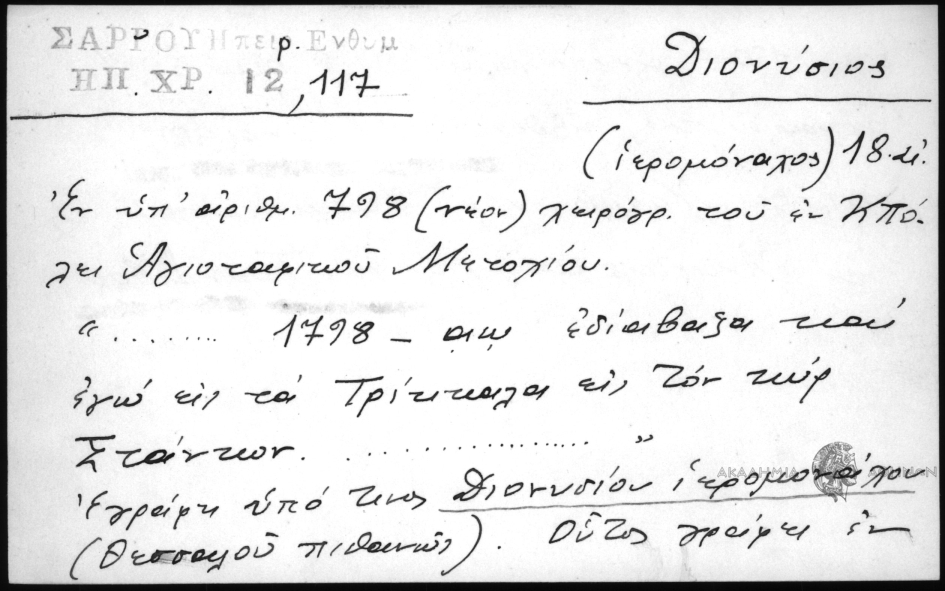 ΣΑΡΡΟΥ Ηπειρ. Ενθυμ
ΗΠ. ΧΡ. 12, 117
Διονύσιος
(ἱερομόναχος) 18. αἰ.
Ἐν ὑπ' ἀριθμ. 798 (νέον) χειρόγρ. τοῦ ἐν Κπό-
λει Ἁγιοταφιτικοῦ Μετοχίου.
“ ........ 1798 – αψ ἐδίαβαξα καὶ
ἐγώ εἰς τὰ Τρίκκαλα εἰς τὸν κύρ
Στάντκον. .................. ”
ΑΚΑΔΗΜΙΑ ΑΘΗΝΩΝ
Ἐγράφη ὑπό τινος Διονυσίου ἱερομονάχου
(Θεσσαλοῦ πιθανῶς). Οὗτος γράφει ἐν